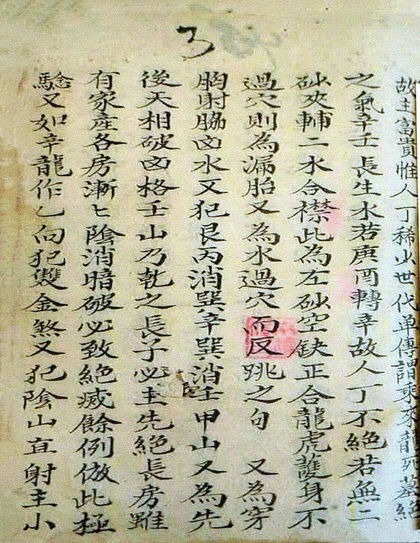 3
故主富貴惟人丁稀少世代單傳謂
之氣辛壬長生水若庚酉轉辛故人丁不絕若無二
砂夾輔二水合襟此為左砂空缺正合龍虎護身不
過穴則為漏胎又為水過穴而反跳之句 又為穿
胸射脇凶水又犯艮丙消巽辛巽消壬甲山又為先
後天相破凶格壬山乃乾之長子必主先絕長房雖
有家產各房漸匕陰消暗破必致絕滅餘例倣此極
驗又如辛龍作乙向犯雙金煞又犯陰山直射主小